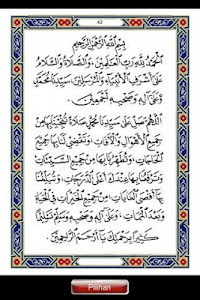 42
بِسْمِ اللهِ الرَّحْمٰنِ الرَّحِيْمِ
اَلْحَمْدُ لِلّٰهِ رَبِّ الْعَالَمِيْنَ، وَالصَّلَاةُ وَالسَّلَامُ
عَلَى أَشْرَفِ الْأَنْبِيَاءِ وَالْمُرْسَلِيْنَ سَيِّدِنَا مُحَمَّدٍ
وَعَلَى آلِهِ وَصَحْبِهِ أَجْمَعِيْنَ.
اَللّٰهُمَّ صَلِّ عَلَى سَيِّدِنَا مُحَمَّدٍ صَلَاةً تُنْجِيْنَا بِهَا مِنْ
جَمِيْعِ الْأَهْوَالِ وَالْآفَاتِ، وَتَقْضِيْ لَنَا جَمِيْعَ
الْحَاجَاتِ، وَتُطَهِّرُنَا بِهَا مِنْ جَمِيْعِ السَّيِّئَاتِ
وَتَرْفَعُنَا بِهَا عِنْدَكَ أَعْلَى الدَّرَجَاتِ، وَتُبَلِّغُنَا
بِهَا أَقْصَى الْغَايَاتِ مِنْ جَمِيْعِ الْخَيْرَاتِ فِي الْحَيَاةِ
وَبَعْدَ الْمَمَاتِ، وَعَلَى آلِهِ وَصَحْبِهِ وَسَلِّمْ تَسْلِيْمًا
كَثِيْرًا بِرَحْمَتِكَ يَا أَرْحَمَ الرَّاحِمِيْنَ
Pilihan